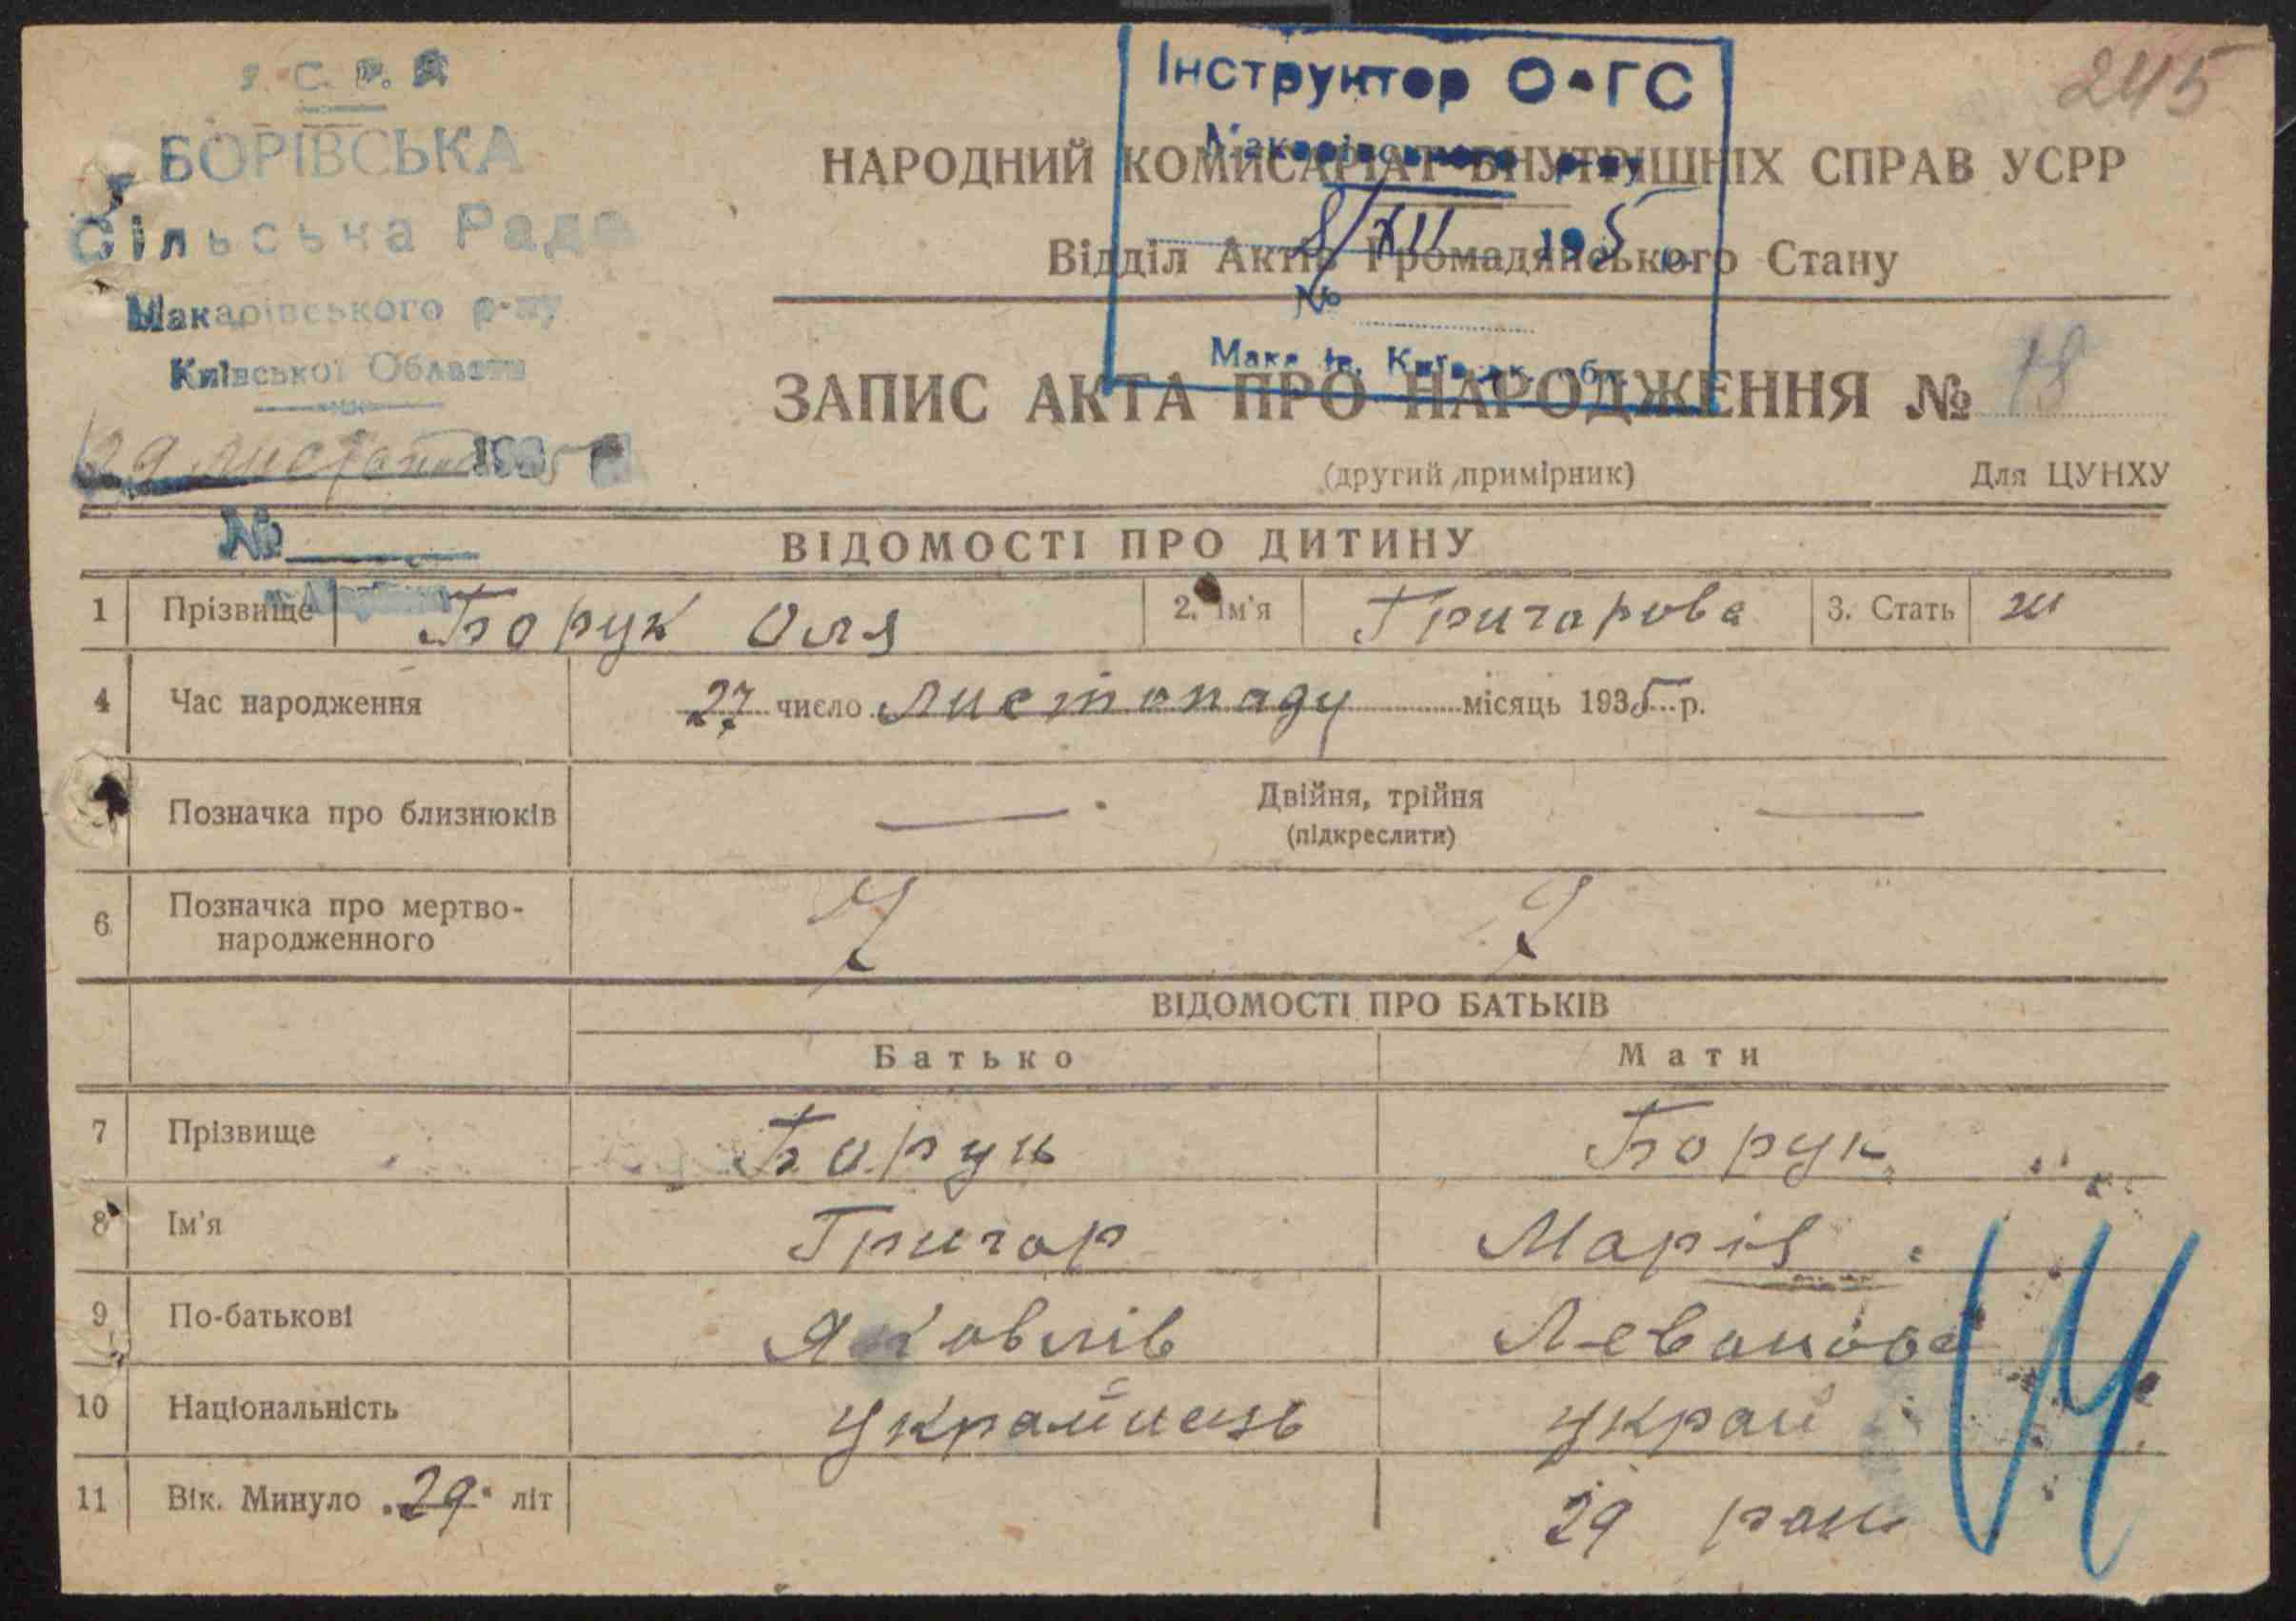 У.С.Р.Р.
БОРІВСЬКА
Сільська Рада
Макарівського р-ну
Київської Області
29 листопада 1935 р
№
Інструктор О-ГС
Макарівського р-ну
8/XII 1935
№
Макарів, Київськ. обл.
245
НАРОДНИЙ КОМИСАРІАТ ВНУТРІШНІХ СПРАВ УСРР
Відділ Актів Громадянського Стану
ЗАПИС АКТА ПРО НАРОДЖЕННЯ № 18
(другий примірник) Для ЦУНХУ
ВІДОМОСТІ ПРО ДИТИНУ
1 Прізвище Борук Оля 2. Ім'я Григорова 3. Стать ж
4 Час народження 27 число листопаду місяць 1935 р.
Позначка про близнюків — Двійня, трійня —
(підкреслити)
6 Позначка про мертво-
народженного
ВІДОМОСТІ ПРО БАТЬКІВ
Батько Мати
7 Прізвище Борук Борук
8 Ім'я Григор Марія
9 По-батькові Яковлів Леванова
10 Національність українець украй
11 Вік. Минуло 29 літ 29 рок